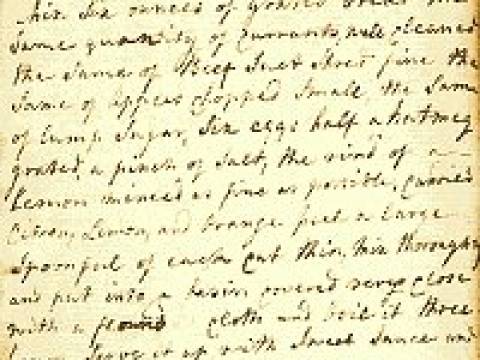 Mix Six ounces of grated bread the
Same quantity of Currants, well cleaned
the Same of Beef Suet Shred fine the
Same of Apples Chopped Small, the Same
of Lump Sugar, Six eggs half a Nutmeg
grated, a pinch of Salt, the rind of a
Lemon minced as fine as possible, Candied
Citron, Lemon, and Orange peel a large
Spoonful of each cut thin, mix thoroughly
and put into a basin covered very close
with a floured cloth and boil it three
hours Serve it up with Sweet Sauce